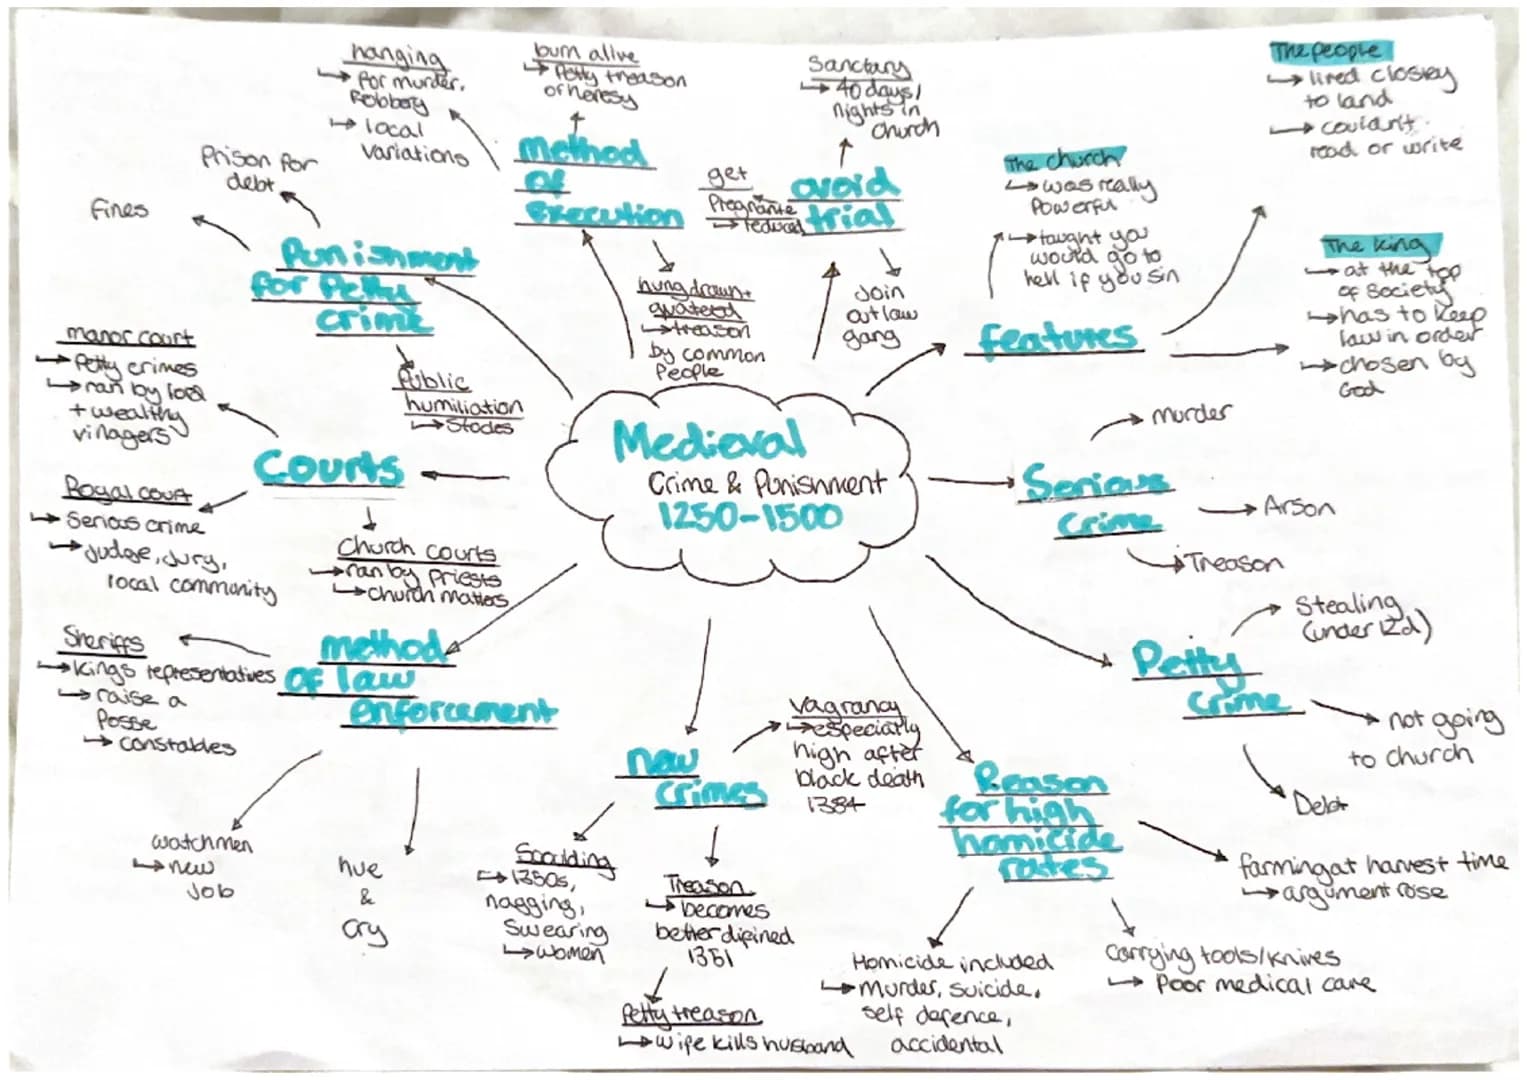 Medieval
Crime & Punishment
1250-1500
Features
The church
↳ was really
Powerful
↳ taught you
would go to
hell if you sin
The people
↳ lived closley
to land
↳ couldn't
read or write
The King
↳ at the top
of society
↳ has to keep
law in order
↳ chosen by
God
Serious
Crime
murder
Arson
Treason
Petty
Crime
Stealing
(under 12d)
not going
to church
Debt
Reason
for high
homicide
rates
farming at harvest time
↳ argument rose
Carrying tools/knives
↳ Poor medical care
Homicide included
↳ Murder, suicide,
self defence,
accidental
new
crimes
Vagrancy
↳ especially
high after
black death
1384
Treason
↳ becomes
better difined
1351
Petty treason
↳ wife kills husband
Scoulding
↳ 1350s,
nagging,
Swearing
↳ women
method
of law
enforcement
hue
&
cry
watchmen
↳ new
job
Sheriffs
↳ Kings representatives
↳ raise a
Posse
↳ constables
Courts
Church courts
↳ ran by priests
↳ church matters
Royal court
↳ Serious crime
↳ Judge, Jury,
local community
manor court
↳ Petty crimes
↳ ran by local
+ wealthy
villagers
Punishment
for Petty
crime
Public
humiliation
↳ Stocks
Fines
Prison for
debt
Method
of
execution
hanging
↳ for murder,
Robbery
↳ local
variations
burn alive
↳ Petty treason
or heresy
hung drawn +
quatered
↳ treason
by common
People
avoid
trial
get
Pregnante
↳ reduced
Sanctary
↳ 40 days/
nights in
church
Join
outlaw
gang